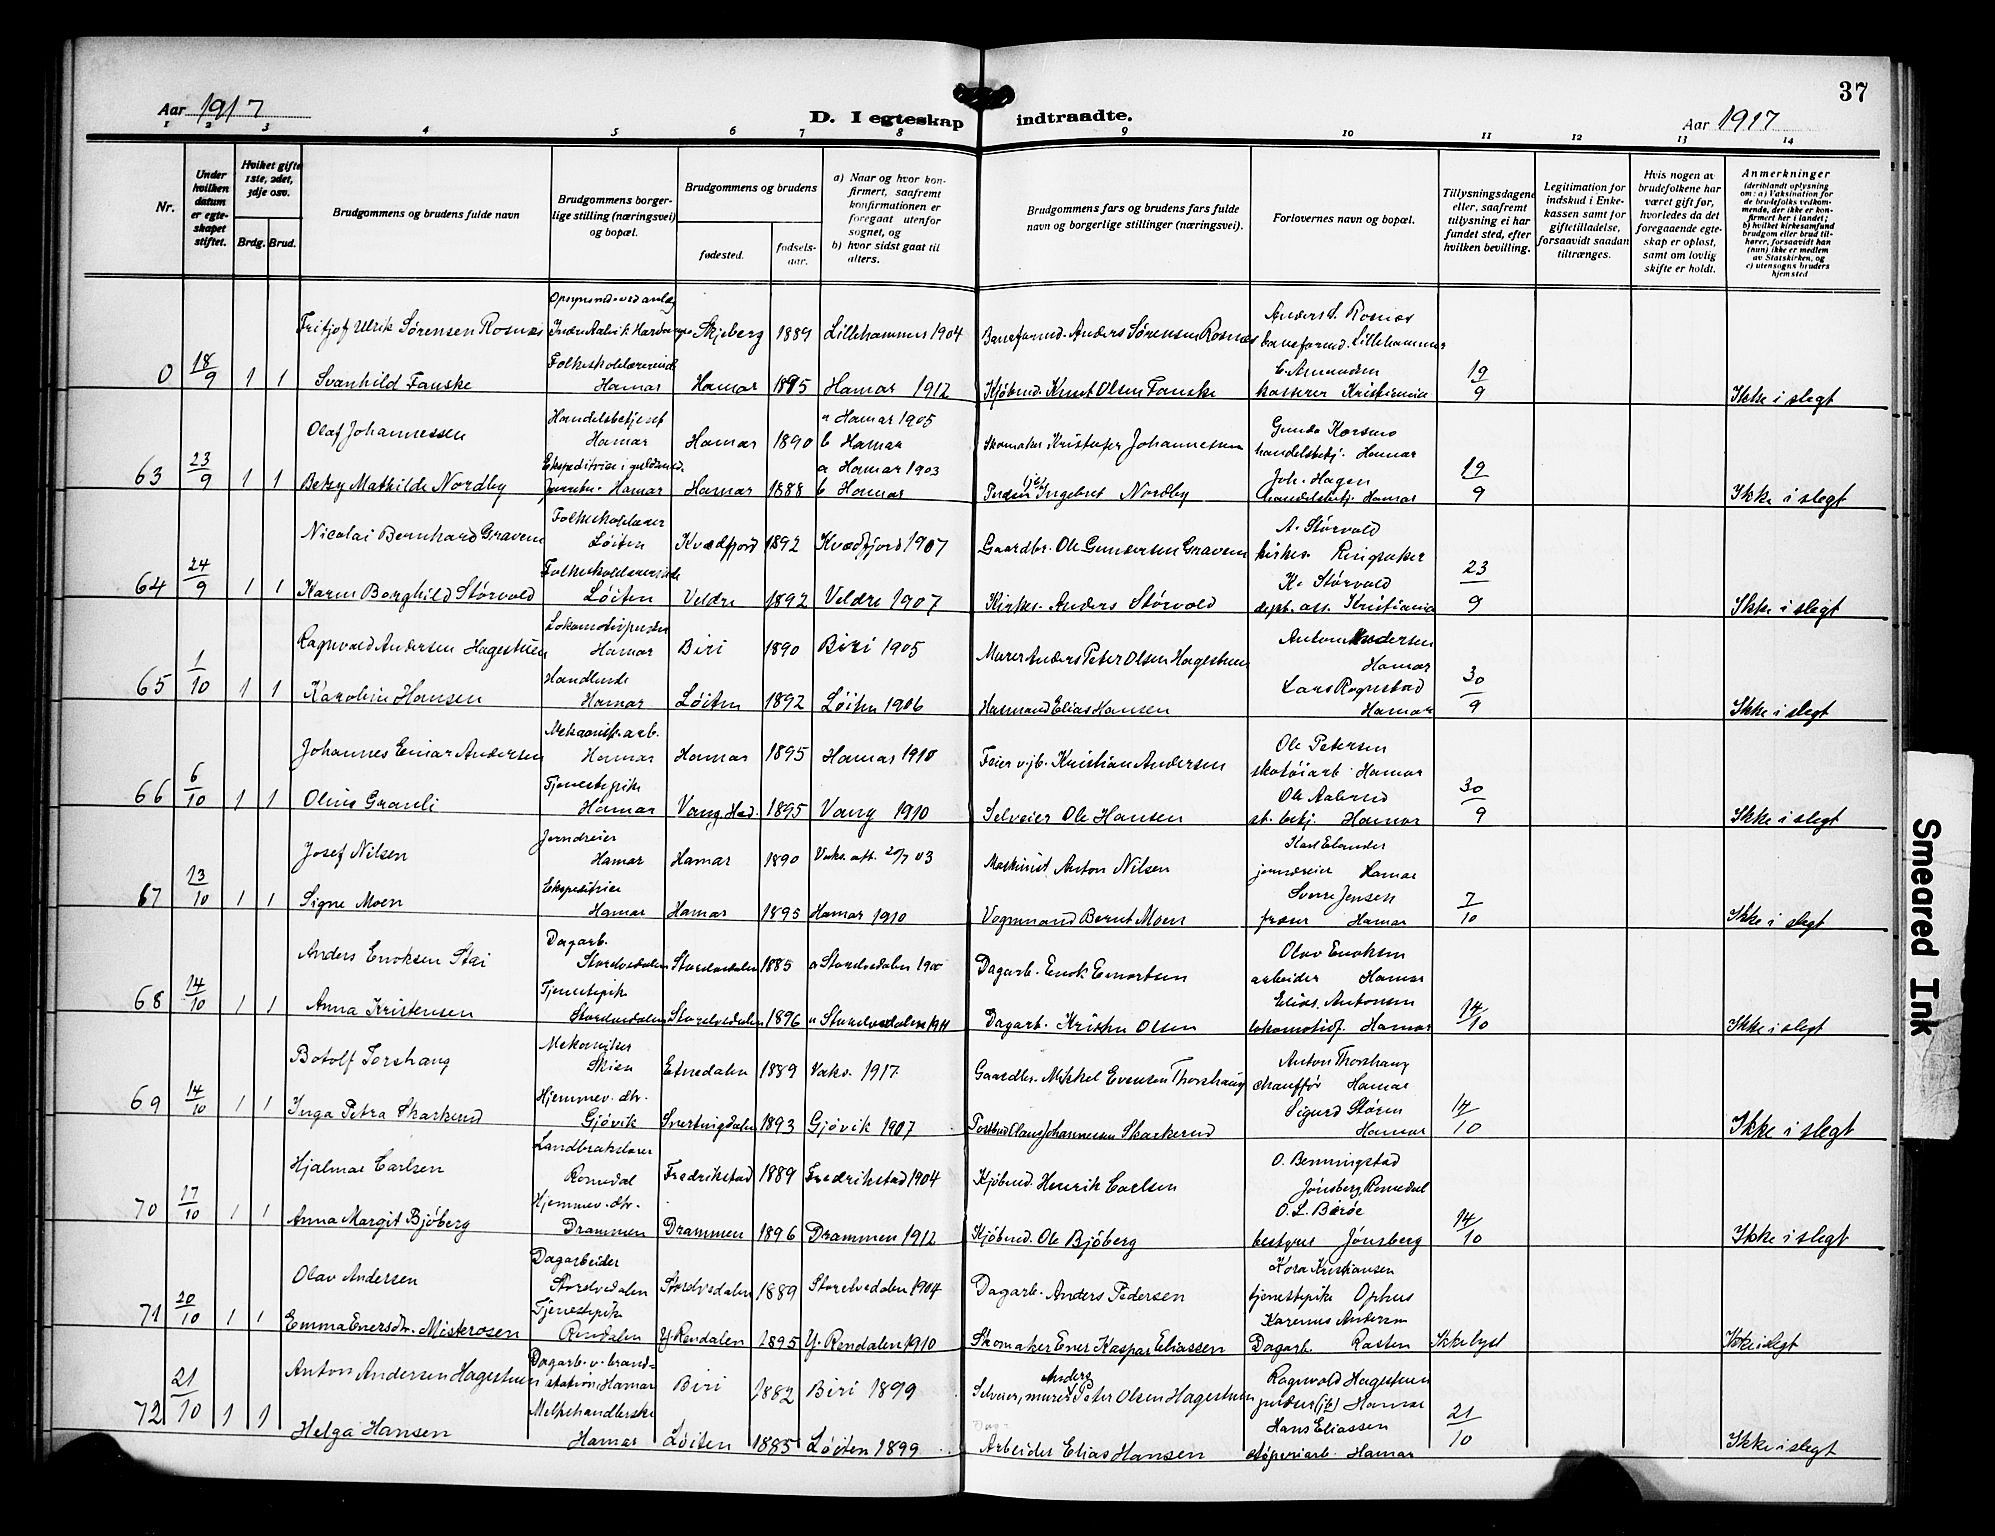 37
Aar 1917
D. I egteskap indtraadte.
Aar 1917
1 2 3 4 5 6 7 8 9 10 11 12 13 14
Nr.
Under hvilken datum er egte-skapet stiftet.
Hvilket gifte 1ste, 2det, 3dje osv.
Brdg. Brud.
Brudgommens og brudens fulde navn
Brudgommens borger-lige stilling (næringsvei) og bopæl.
Brudgommens og brudens
fødested.
fødsels-aar.
a) Naar og hvor kon-firmert, saafremt konfirmationen er foregaat utenfor sognet, og
b) hvor sidst gaat til alters.
Brudgommens fars og brudens fars fulde navn og borgerlige stillinger (næringsvei).
Forlovernes navn og bopæl.
Tillysningsdagene eller, saafremt tillysning ei har fundet sted, efter hvilken bevilling.
Legitimation for indskud i Enke-kassen samt for giftetilladelse, forsaavidt saadan tiltrænges.
Hvis nogen av brudefolkene har været gift før, hvorledes da det foregaaende egte-skap er opløst, samt om lovlig skifte er holdt.
Anmerkninger
(deriblandt oplysning om: a) Vaksination for de brudefolks vedkom-mende, der ikke er kon-firmert her i landet; b) hvilket kirkesamfund brudgom eller brud til-hører, forsaavidt han (hun) ikke er medlem av Statskirken, og c) utensogns bruders hjemsted
Fritjof Ulrik Sørensen Rosnæs Skjeberg 1889 Lillehammer 1904 Baneformd. Anders Sørensen Rosnæs Anders S. Rosnæs baneformd. Lillehammer
0 18/9 1 1 Svanhild Fauske Folkeskolelærerinde Hamar Hamar 1895 Hamar 1912 Kjøbmd. Knut Olsen Fauske kasserer Kristiania 19/9 Ikke i slegt
Olaf Johannessen Handelsbetjent Hamar Hamar 1890 a Hamar 1905 b Hamar Skomaker Kristofer Johannessen handelsbetj. Hamar
63 23/9 1 1 Betzy Mathilde Nordby Hamar Hamar 1888 a Hamar 1903 b Hamar Ingebret Nordby Joh. Hagen handelsbetj. Hamar 19/9 Ikke i slegt
Nicolai Bernhard Gravem Folkeskolelærer Løiten Kvædfjord 1892 Kvædfjord 1907 Gaardbr. Ole Gundersen Gravem A. Størvold kirkes. Ringsaker
64 24/9 1 1 Karen Borghild Størvold Folkeskolelærerinde Løiten Veldre 1892 Veldre 1907 Kirkes. Anders Størvold K. Størvold dept. ass. Kristiania 23/9 Ikke i slegt
Ragnvald Andersen Hagestuen Lokomotivpudser Hamar Biri 1890 Biri 1905 Murer Anders Peter Olsen Hagestuen Anton Andersen Hamar
65 1/10 1 1 Karoline Hansen Handlende Hamar Løiten 1892 Løiten 1906 Husmand Elias Hansen Lars Rognstad Hamar 30/9 Ikke i slegt
Johannes Einar Andersen Mekanisk arb. Hamar Hamar 1895 Hamar 1910 Feier v. jb. Kristian Andersen Ole Petersen skotøiarb. Hamar
66 6/10 1 1 Oline Granli Tjenestepike Hamar Vang, Hed. 1895 Vang 1910 Selveier Ole Hansen Ole Aalerud st. betj. Hamar 30/9 Ikke i slegt
Josef Nilsen Jerndreier Hamar Hamar 1890 Vaks. att. 20/7 03 Maskinist Anton Nilsen Karl Elander jerndreier Hamar
67 13/10 1 1 Signe Moen Ekspeditrice Hamar Hamar 1895 Hamar 1910 Vognmand Bernt Moen Sverre Jensen fræser Hamar 7/10 Ikke i slegt
Anders Enoksen Stai Dagarb. Storelvedalen Storelvedalen 1885 a Storelvedalen 1900 Dagarb. Enok Emortsen Olav Enoksen arbeider Hamar
68 14/10 1 1 Anna Kristensen Tjenestepik Storelvedalen Storelvedalen 1896 a Storelvedalen 1911 Dagarb. Kristen Olsen Elias Antonsen lokomotivf. Hamar 14/10 Ikke i slegt
Botolf Torshaug Mekaniker Skien Etnedalen 1889 Vaks. 1917 Gaardbr. Mikkel Evensen Thorshaug Anton Thorshaug chauffør Hamar
69 14/10 1 1 Inga Petra Skarkerud Hjemmev. dtr. Gjøvik Snertingdalen 1893 Gjøvik 1907 Postbud Claus Johannessen Skarkerud Sigurd Støren Hamar 14/10 Ikke i slegt
Hjalmar Carlsen Landbrukslærer Romedal Fredrikstad 1889 Fredrikstad 1904 Kjøbmd. Henrik Carlsen O. Benningstad Jønsberg, Romedal
70 17/10 1 1 Anna Margit Bjøberg Hjemmev. dtr. Drammen Drammen 1896 Drammen 1912 Kjøbmd. Ole Bjøberg O. L. Børøe bestyrer Jønsberg 14/10 Ikke i slegt
Olav Andersen Dagarbeider Storelvedalen Storelvedalen 1889 Storelvedalen 1904 Dagarb. Anders Pedersen Kora Kristiansen tjenestepike Ophus
71 20/10 1 1 Emma Enersdtr. Miskrosen Tjenestepik Rendalen Y. Rendalen 1895 Y. Rendalen 1910 Skomaker Ener Kaspar Eliassen Karenus Andersen Dagarb. Rasten Ikke lyst Ikke i slegt
Anton Andersen Hagestuen Dagarb. v. brand-station, Hamar Biri 1882 Biri 1899 Selveier, murer Anders Peter Olsen Hagestuen Ragnvald Hagestuen pudser (jb) Hamar
72 21/10 1 1 Helga Hansen Melkehandlerske Hamar Løiten 1885 Løiten 1899 Arbeider Elias Hansen Hans Eliassen støperiarb. Hamar 21/10 Ikke i slegt
Smeared Ink